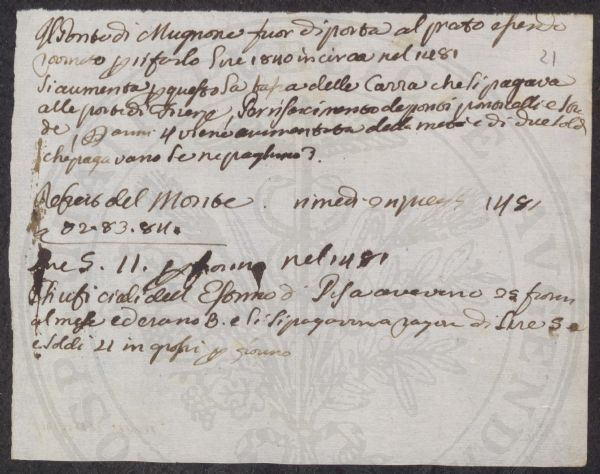 Il Ponte di Mugnone fuor di porta al prato essendo
rovinato p rifarlo lire 1840 in circa nel 1481
21
Si aumenta p questo la tassa delle Carra che si pagava
alle porte di Firenze, Per risarcimento de ponti ponticelli e stra
de, p anni 4 viene aumentata della metà e di due soldi
che pagavano se ne paghino 3.
del Monte. rimedi 1481
82. 83. 84.
lire 5. 11. p fiorino nel 1481
Gli uficiali dell di Pisa avevano 25 fiorini
al mese ed erano 8. e li si pagavano a ragion di lire 5 e
e soldi 11 in grossi p fiorino